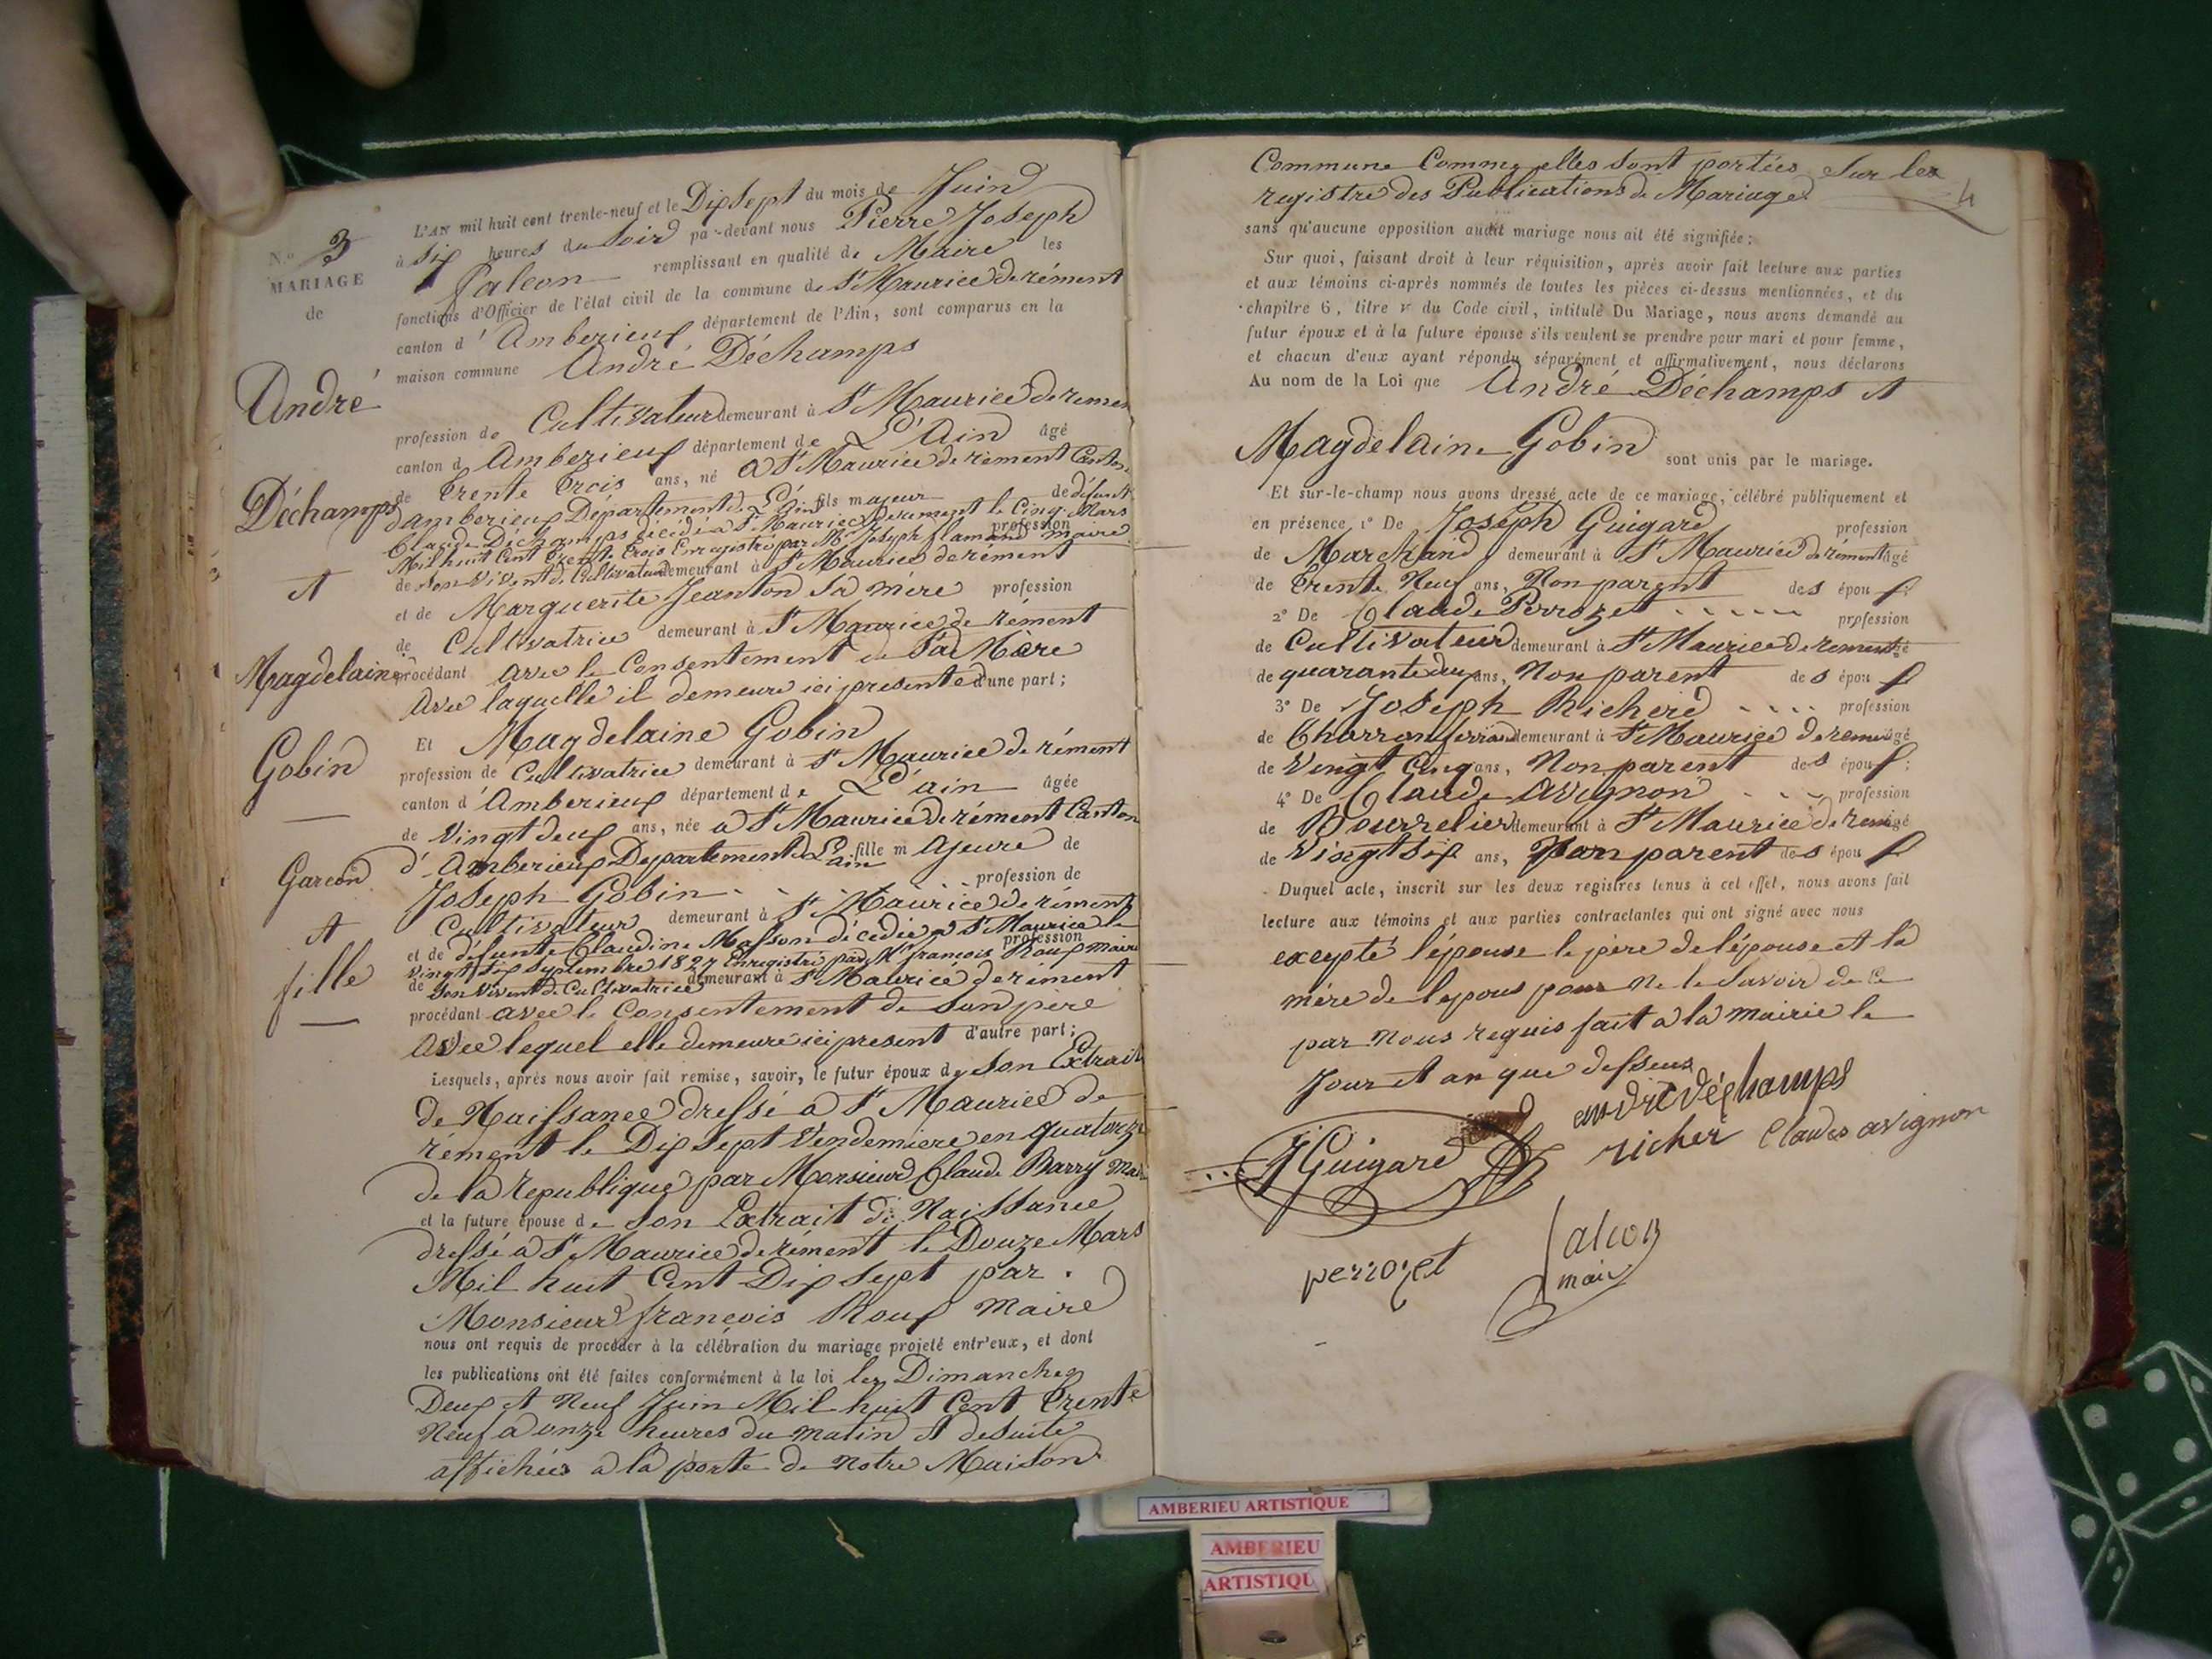 N.o 3
MARIAGE
de
André
Déchamps
et
Magdelaine
Gobin
Garcon
et
fille
L'AN mil huit cent trente-neuf et le Dix Sept du mois de Juin
à Six heures du Soir par-devant nous Pierre Joseph
falcon remplissant en qualité de Maire les
fonctions d'Officier de l'état civil de la commune de St Maurice de rément
canton d'Amberieux département de l'Ain, sont comparus en la
maison commune André Déchamps
profession de Cultivateur demeurant à St Maurice de remen
canton d Amberieux département de L'Ain âgé
de trente trois ans, né a St Maurice de rément Canton
d'amberieux Département de L'ain fils majeur de défunt
Claude Déchamps décédé a St Maurice de rement le Cinq Mars
Mil huit Cent trente trois Enregistré par Mr Joseph flamand maire profession
de Son Vivent de Cultivateur demeurant à St Maurice de rément
et de Marguerite Jeanton Sa mère profession
de Cultivatrice demeurant à St Maurice de rément
procédant avec le Consentement de Sa Mère
avec laquelle il demeure ici presente d'une part;
Et Magdelaine Gobin
profession de Cultivatrice demeurant à St Maurice de rément
canton d'Amberieux département de L'ain âgée
de Vingt deux ans, née a St Maurice de rément Canton
d'Amberieux Departement de L'ain fille majeure de
Joseph Gobin profession de
Cultivateur demeurant à St Maurice de rément
et de défunte Claudine Masson décédée a St Maurice le
vingt Six Septembre 1827 Enregistré par Mr francois Roux Maire profession
de Son Vivent de Cultivatrice demeurant à St Maurice de riment
procédant avec le Consentement de Son père
avec lequel elle demeure ici present d'autre part;
Lesquels, après nous avoir fait remise, savoir, le futur époux de Son Extrait
de Naissance dressé a St Maurice de
rément le Dix Sept Vendemiere en quatorze
de la republique par Monsieur Claude Barry Maire
et la future épouse de Son Extrait de Naissance
dressé a St Maurice de rément le Douze Mars
Mil huit Cent Dix Sept par
Monsieur francois Roux Maire
nous ont requis de procéder à la célébration du mariage projeté entr'eux, et dont
les publications ont été faites conformément à la loi les Dimanches
Deux et Neuf Juin Mil huit Cent trente
Neuf a onze heures du matin et desuite
affichées a la porte de Notre Maison
4
Commune Comme elles Sont portées Sur les
registre des Publications de Mariage
sans qu'aucune opposition audit mariage nous ait été signifiée;
Sur quoi, faisant droit à leur réquisition, après avoir fait lecture aux parties
et aux témoins ci-après nommés de toutes les pièces ci-dessus mentionnées, et du
chapitre 6, titre v du Code civil, intitulé Du Mariage, nous avons demandé au
futur époux et à la future épouse s'ils veulent se prendre pour mari et pour femme,
et chacun d'eux ayant répondu séparément et affirmativement, nous déclarons
Au nom de la Loi que André Déchamps et
Magdelaine Gobin sont unis par le mariage.
Et sur-le-champ nous avons dressé acte de ce mariage, célébré publiquement et
en présence 1° De Joseph Guigard profession
de Marchand demeurant à St Maurice de rément âgé
de trente Neuf ans, Non parent des époux
2° De Claude Perrozet profession
de Cultivateur demeurant à St Maurice de rement
de quarante deux ans, Non parent des époux
3° De Joseph Richerd profession
de Charron ferrand demeurant à St Maurice de remen âgé
de Vingt Cinq ans, Non parent des époux;
4° De Claude Avignon profession
de Bourrelier demeurant à St Maurice de rem âgé
de Vingt Six ans, Non parent des époux
Duquel acte, inscrit sur les deux registres tenus à cet effet, nous avons fait
lecture aux témoins et aux parties contractantes qui ont signé avec nous
excepté l'épouse le père de l'épouse et la
mère de l'epoux pour Ne le Savoir de ce
par Nous requis fait a la mairie le
Jour et an que dessus
andré déchamps
J Guigard richer Claude avignon
perrozet
falcon
maire
AMBERIEU ARTISTIQUE
AMBERIEU
ARTISTIQU